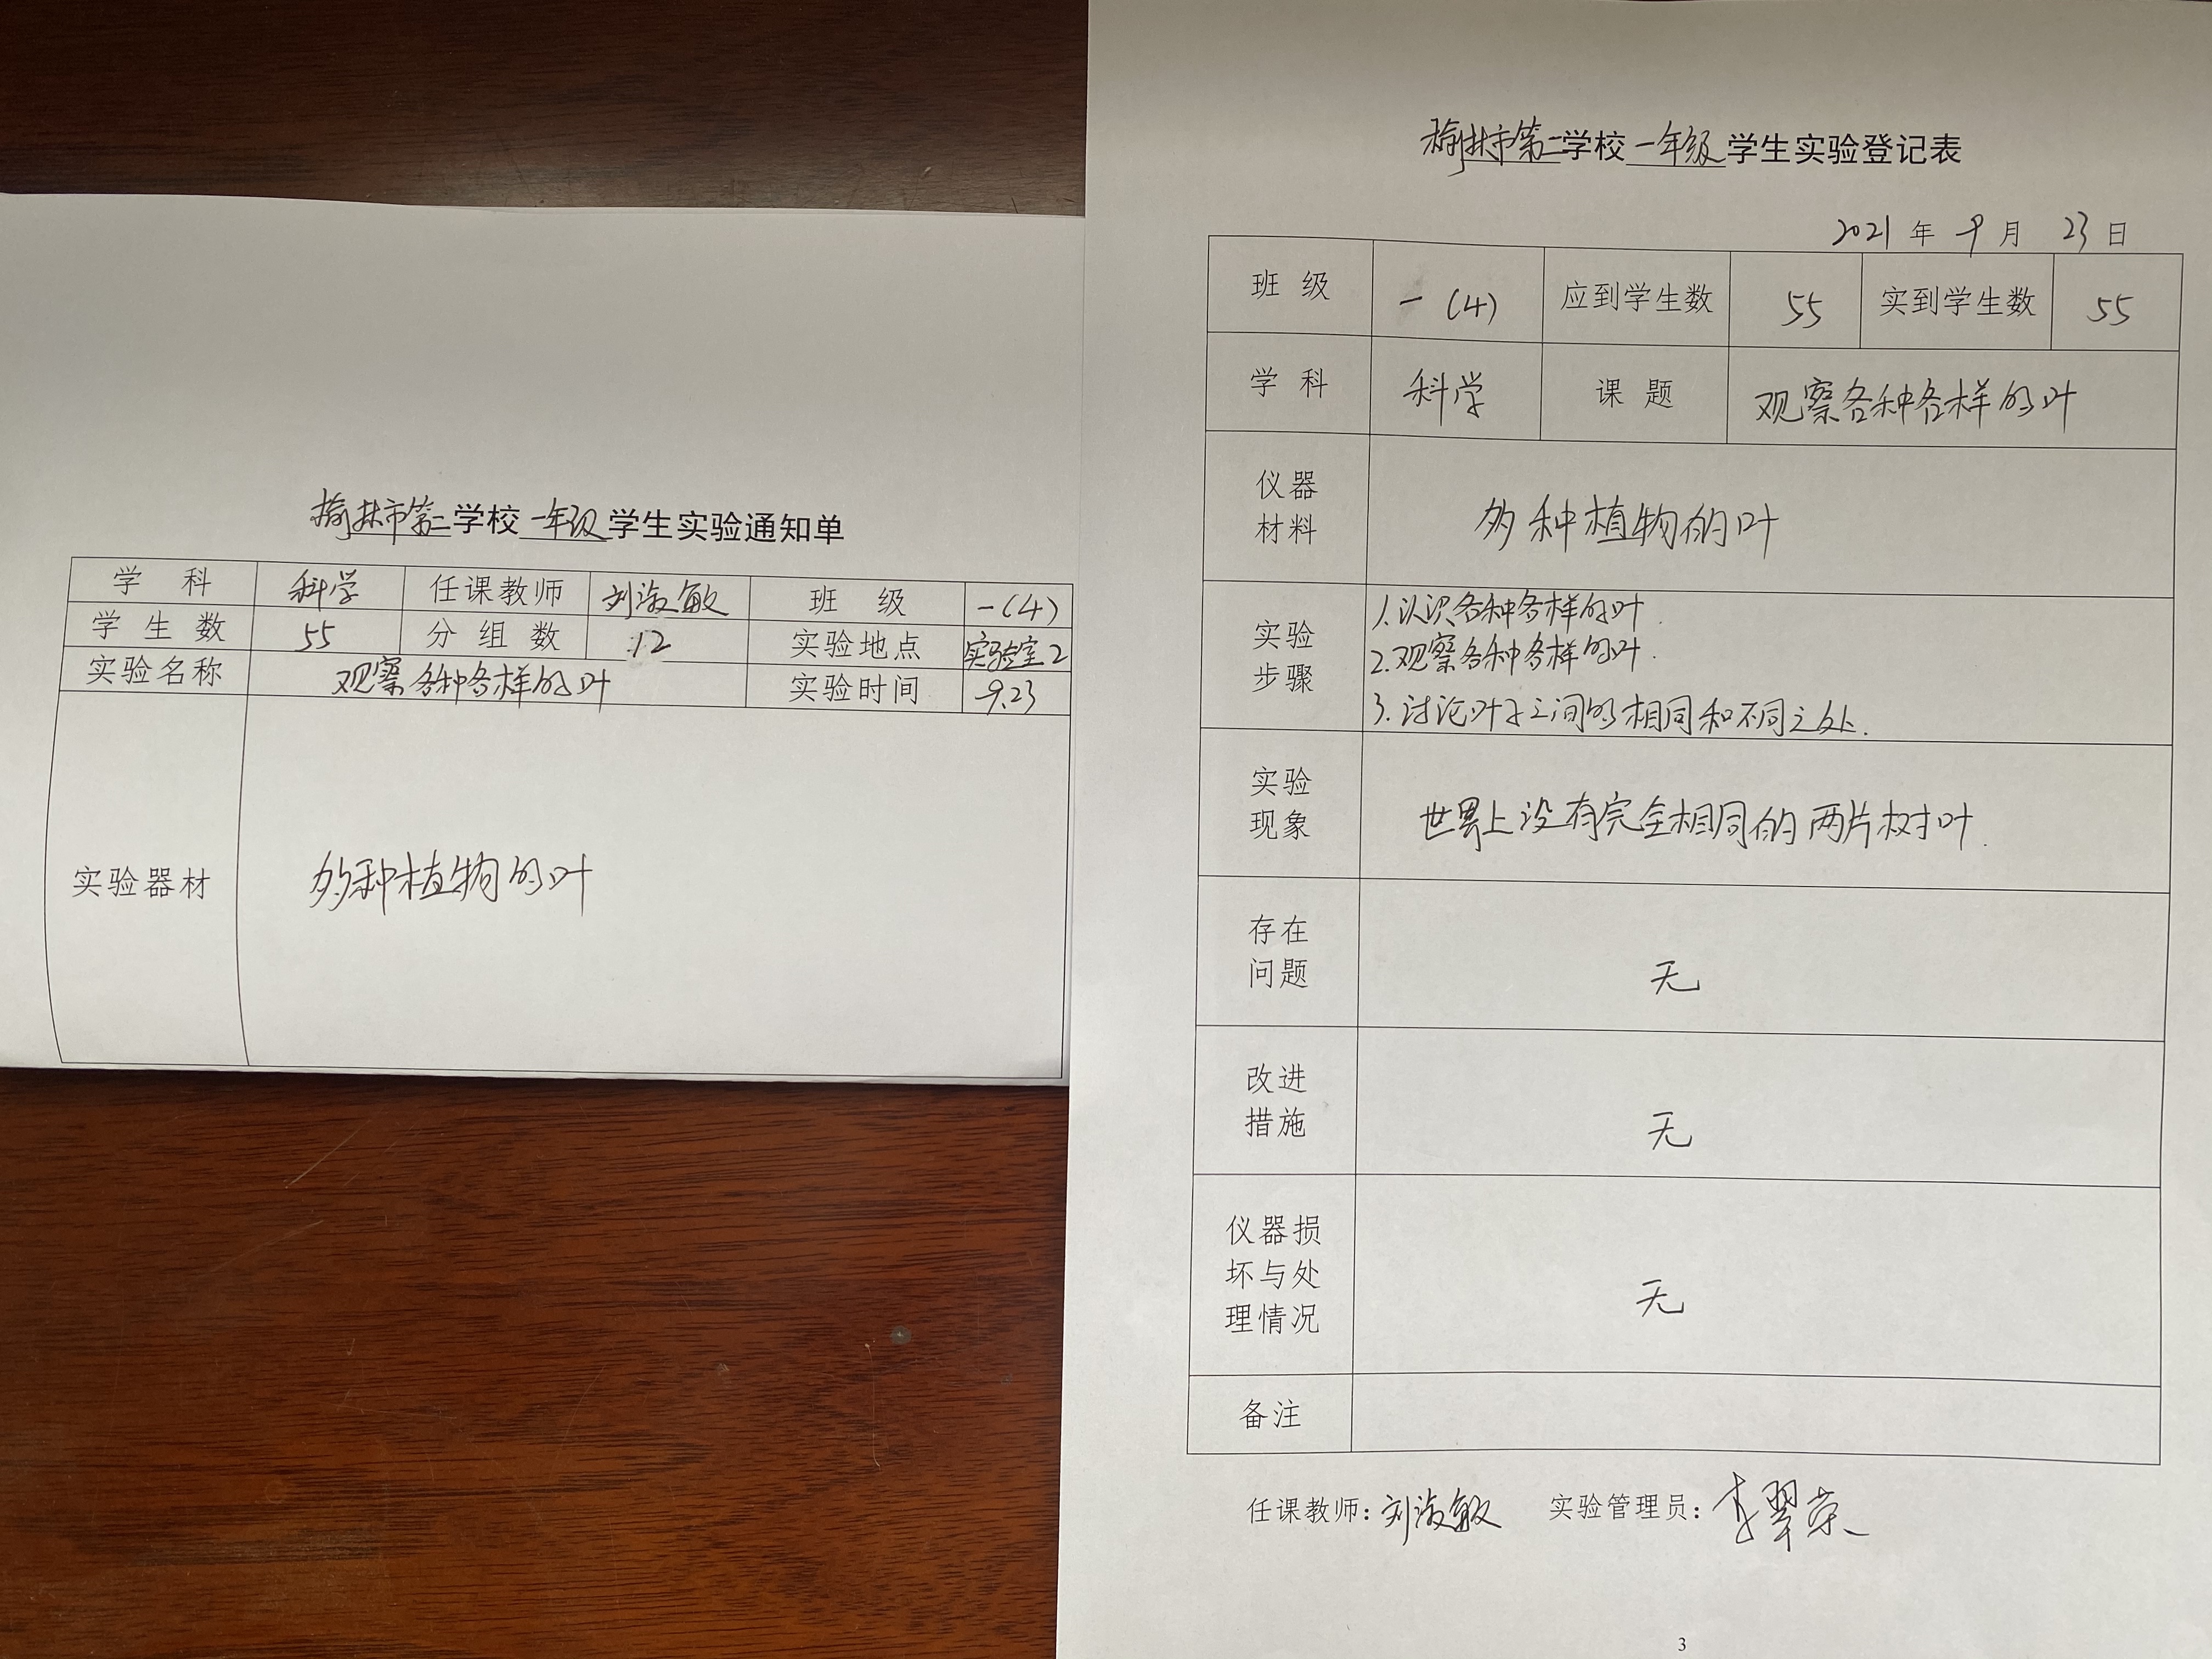 榆林市第二学校一年级学生实验通知单
学 科 科学 任课教师 刘淑敏 班 级 一(4)
学生数 55 分组数 12 实验地点 实验室2
实验名称 观察各种各样的叶 实验时间 9.23
实验器材 多种植物的叶
榆林市第二学校一年级学生实验登记表
2021年9月23日
班 级 一(4) 应到学生数 55 实到学生数 55
学 科 科学 课 题 观察各种各样的叶
仪器
材料
多种植物的叶
实验
步骤
1.认识各种各样的叶.
2.观察各种各样的叶.
3.讨论叶子之间的相同和不同之处.
实验
现象
世界上没有完全相同的两片树叶.
存在
问题
无
改进
措施
无
仪器损
坏与处
理情况
无
备注
任课教师:刘淑敏 实验管理员:李翠荣
3